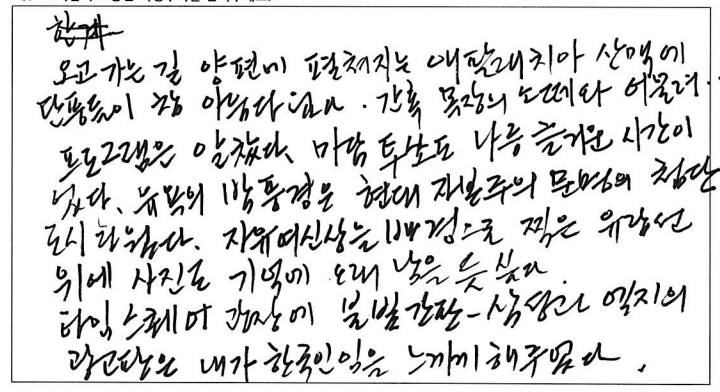 오고 가는 길 양편에 펼쳐지는 애팔래치아 산맥에
단풍들이 참 아름다웠다. 간혹 목장의 소떼와 어울려..
프로그램은 알찼다. 마담투소도 나름 즐거운 시간이
었다. 뉴욕의 밤풍경은 현대 자본주의 문명의 첨단
도시 다웠다. 자유여신상을 배경으로 찍은 유람선
위에 사진도 기억에 오래 남을 듯 싶다.
타임스퀘어 광장에 불빛간판-삼성과 엘지의
광고판은 내가 한국인임을 느끼게 해주었다.